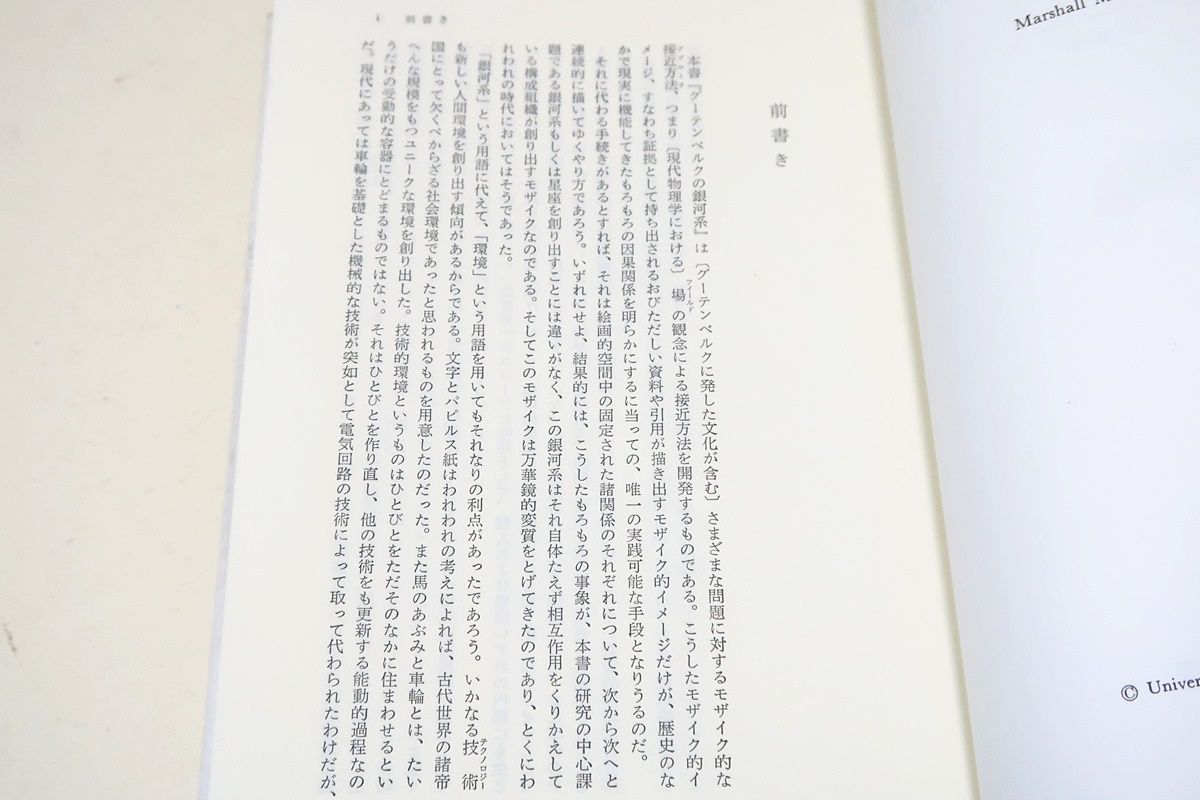 i　前書き
前書き
本書『グーテンベルクの銀河系』は〔グーテンベルクに発した文化が含む〕さまざまな問題に対するモザイク的な
接近方法、つまり〔現代物理学における〕場の観念による接近方法を開発するものである。こうしたモザイク的イ
アプローチ
フィールド
メージ、すなわち証拠として持ち出されるおびただしい資料や引用が描き出すモザイク的イメージだけが、歴史のな
かで現実に機能してきたもろもろの因果関係を明らかにするに当っての、唯一の実践可能な手段となりうるのだ。
それに代わる手続きがあるとすれば、それは絵画的空間中の固定された諸関係のそれぞれについて、次から次へと
連続的に描いてゆくやり方であろう。いずれにせよ、結果的には、こうしたもろもろの事象が、本書の研究の中心課
題である銀河系もしくは星座を創り出すことには違いがなく、この銀河系はそれ自体たえず相互作用をくりかえして
いる構成組織が創り出すモザイクなのである。そしてこのモザイクは万華鏡的変質をとげてきたのであり、とくにわ
れわれの時代においてはそうであった。
「銀河系」という用語に代えて、「環境」という用語を用いてもそれなりの利点があったであろう。いかなる技術
テクノロジー
も新しい人間環境を創り出す傾向があるからである。文字とパピルス紙はわれわれの考えによれば、古代世界の諸帝
国にとって欠くべからざる社会環境であったと思われるものを用意したのだった。また馬のあぶみと車輪とは、たい
へんな規模をもつユニークな環境を創り出した。技術的環境というものはひとびとをただそのなかに住まわせるとい
うだけの受動的な容器にとどまるものではない。それはひとびとを作り直し、他の技術をも更新する能動的過程なの
だ。現代にあっては車輪を基礎とした機械的な技術が突如として電気回路の技術によって取って代わられたわけだが、
Marshall M
© Univer